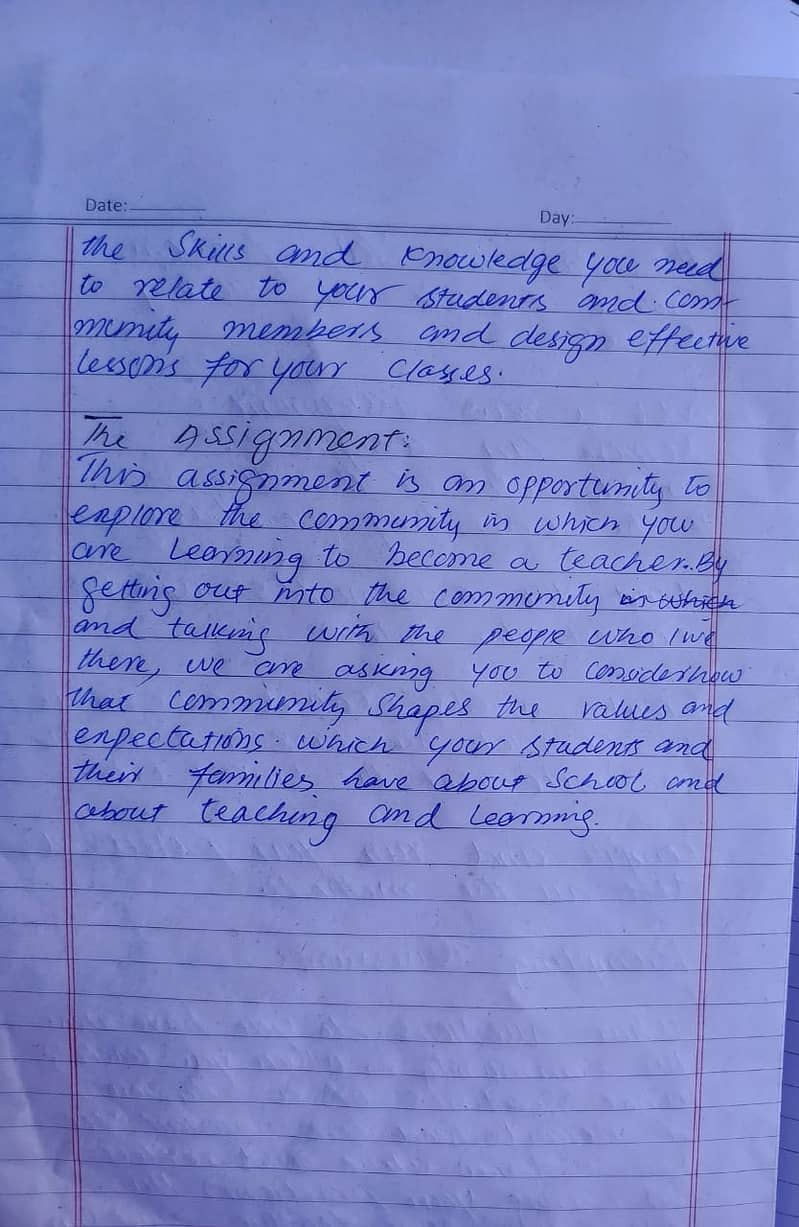 Date:
Day:
the Skills and Knowledge you need
to relate to your students and com-
munity members and design effective
lessons for your classes.
The Assignment:
This assignment is an opportunity to
explore the community in which you
are Learning to become a teacher. By
getting out into the community in which
and talking with the people who live
there, we are asking you to consider how
that community shapes the values and
expectations. which your students and
their families have about School and
about teaching and Learning.